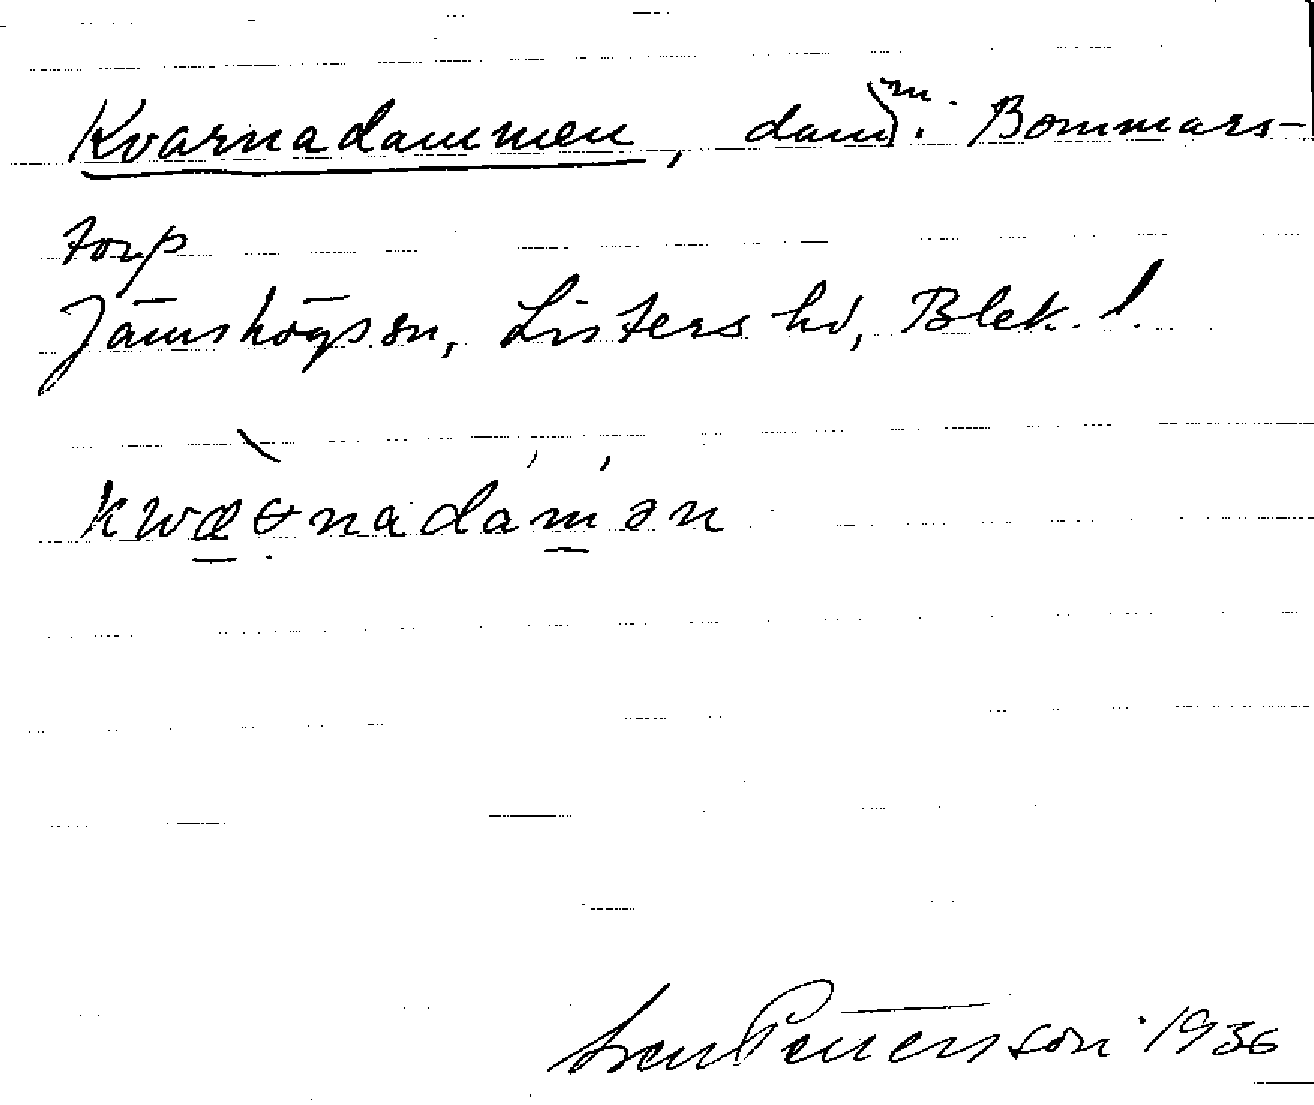 Kvarnadammen, damm. Bommars-
torp
Jämshögs sn, Listers hd, Blek. l.
kwæɐ̣nadamən
Sven Pettersson 1936